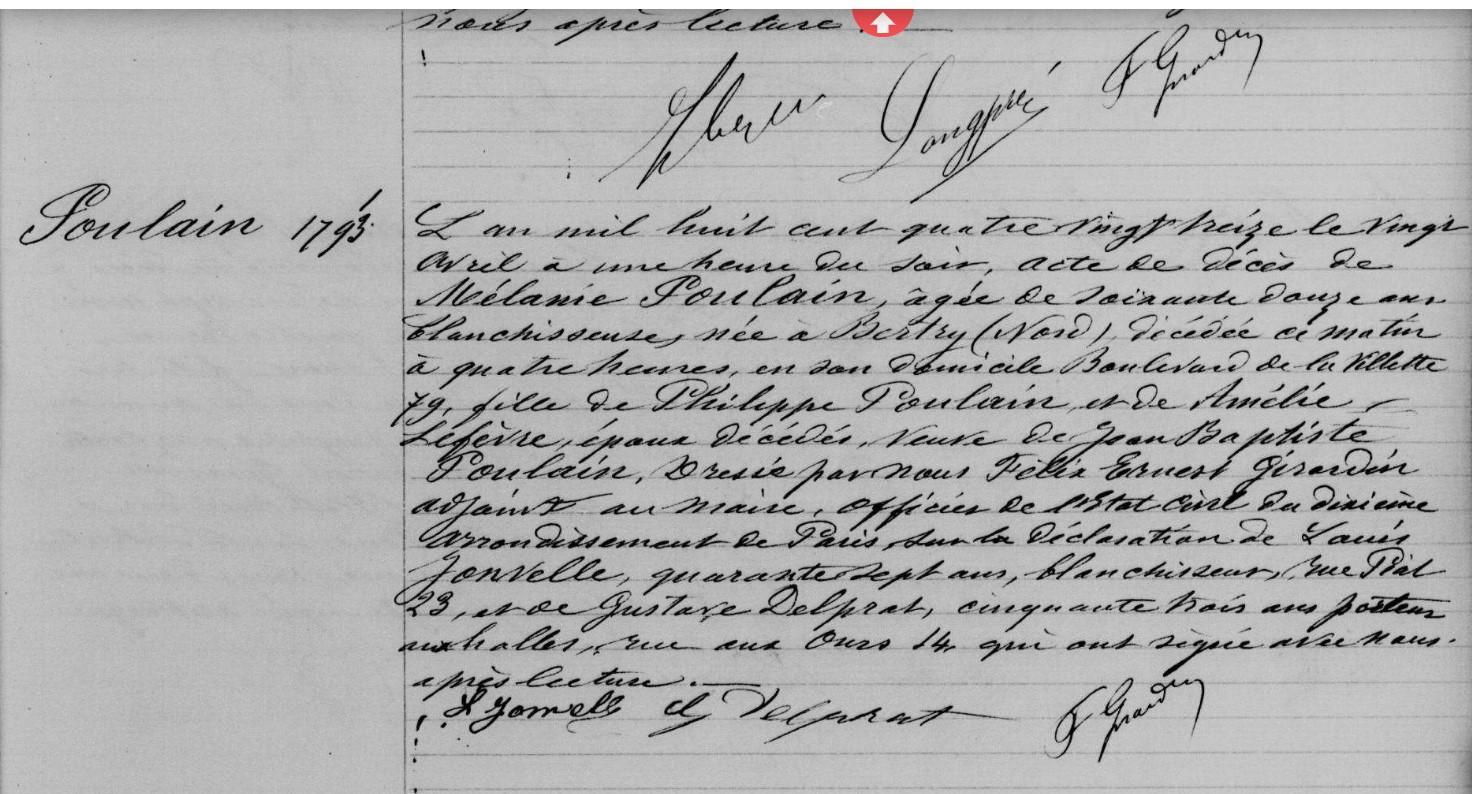 nous après lecture.
Longpré F Girardin
Poulain 1793
L'an mil huit cent quatre vingt treize le vingt
avril à une heure du soir, acte de décès de
Mélanie Poulain, âgée de soixante douze ans
blanchisseuse, née à Bertry (Nord), décédée ce matin
à quatre heures, en son domicile Boulevard de la Villette
79, fille de Philippe Poulain, et de Amélie
Lefèvre, époux décédés, veuve de Jean Baptiste
Poulain, Dressé par nous Félix Ernest Girardin
adjoint au maire, officier de l'Etat civil du dixième
arrondissement de Paris, sur la déclaration de Louis
Jonvelle, quarante sept ans, blanchisseur, rue Piat
23, et de Gustave Delprat, cinquante trois ans porteur
aux halles, rue aux Ours 14, qui ont signé avec nous
après lecture.
L Jonvelle G Delprat F Girardin